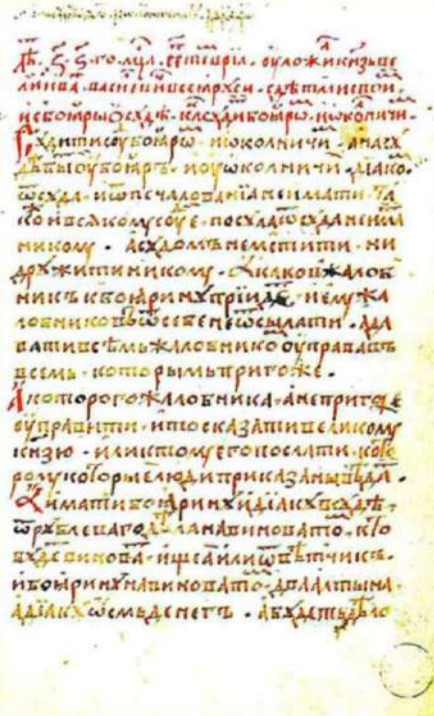 лѣⷮ ҂ꙃ ѕ҃-го мцⷭа септевріа оуложил кнѧзь ве
ликіи иваⷩ васильевиⷱ всеа рꙋси с дѣтми своими
и с боꙗры ѡ сꙋдѣ какъ сꙋдити боꙗроⷨ и ѡколничиⷨ
Сꙋдити сꙋⷣ боꙗроⷨ и ѡколничиⷨ а на сꙋ
дѣ быти оу боꙗръ и оу ѡколничиⷯ діакоⷨ
ѿ сꙋда и ѿ печалованіа не имати та
коⷤ и всѧкомꙋ сꙋдїе посꙋла ѿ сꙋда не има
никомꙋ а сꙋдомъ не мстити ни
дрꙋжити никомꙋ а каков жалоб
никъ к боꙗринꙋ прїидеⷮ и емꙋ жа
лобниковъ ѿ себе не ѿсылати а да
вати всѣмъ жалобникоⷨ оуправа въ
всемъ которымъ пригоже
А которого жалобника а непригоже
оуправити и то сказати великомꙋ
кнзю или к томꙋ его послати кото
ромꙋ которые люди приказаны вѣдаⷮ
А имати боꙗринꙋ и діакꙋ в сꙋдѣ
ѿ рꙋблеваго дѣла на виноватоⷨ кто
бꙋде виноваⷮ ищеа или ѿвѣтчикъ
и боꙗринꙋ на виноватоⷨ два алтына
а діакꙋ ѡсмь денегъ а бꙋдетъ дѣло